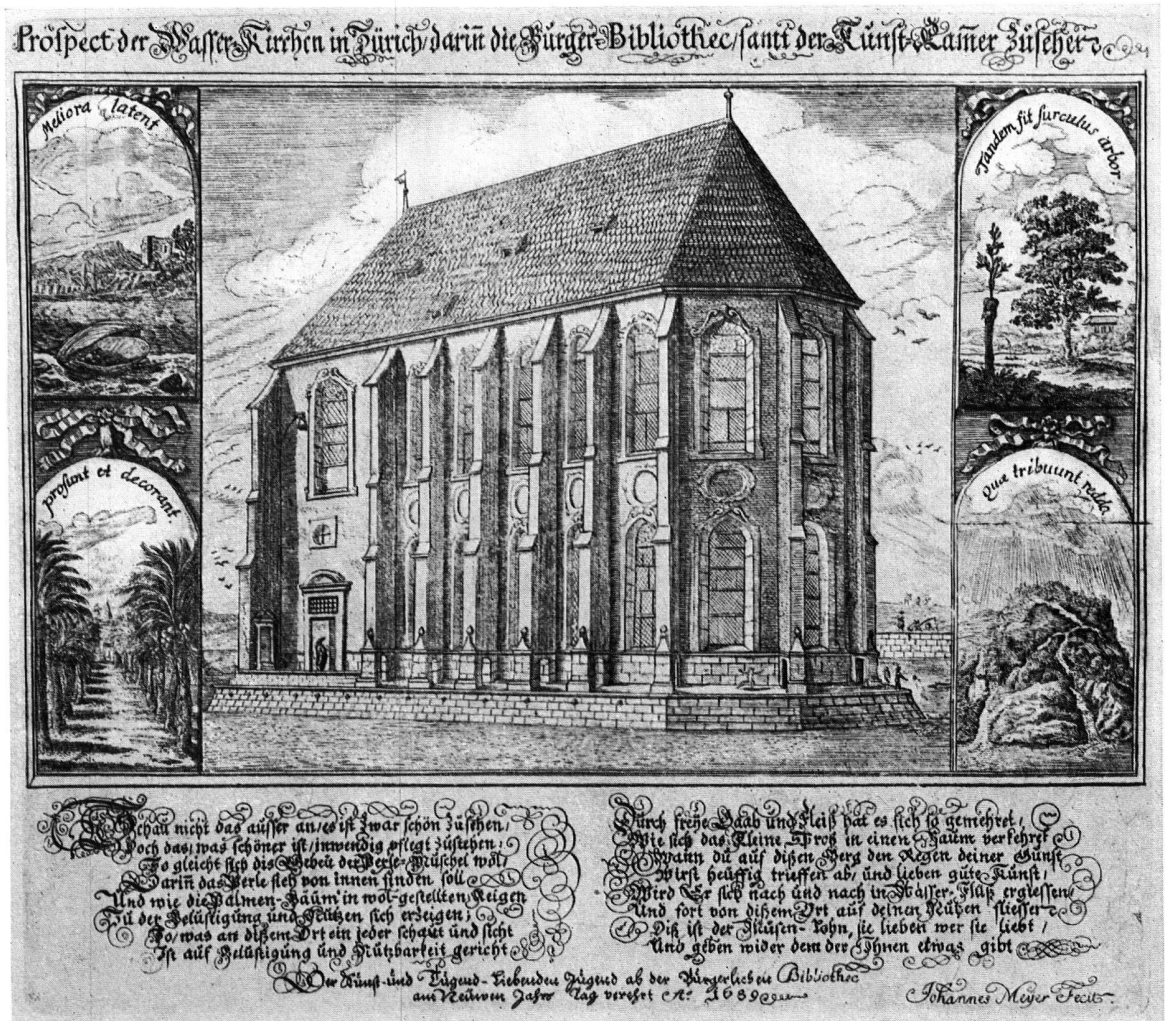 Prospect der Wasser-Kirchen in Zürich/ darin̄ die Bürger-Bibliothec/ samt der Kunst-Kam̄er Zusehen
Meliora latent
Tandem fit surculus arbor.
prosunt et decorant.
Quæ tribuunt reddo.
Schau nicht das äusser an/ es ist zwar schön zusehen/
Doch das/ was schöner ist/ inwendig pflegt zustehen;
So gleicht sich dis Gebeü der Perle-Muschel wol/
Darin̄ das Perle sich von innen finden soll
Und wie die Palmen-Bäum in wol-gestellten Reigen
Zu der Belustigung und Nutzen sich erzeigen;
So/ was an disem Ort ein jeder schaut und sicht
Ist auf Belustigung und Nutzbarkeit gericht
Durch freÿe Gaab und Fleiß hat es sich so gemehret/
Wie sich das Kleine Sproß in einen Baum verkehret
Wann du auf disen Berg den Regen deiner Gunst
Wirst heüffig trieffen ab/ und lieben gute Kunst/
Wird Er sich nach und nach in Wasser-Flüß ergiessen/
Und fort von disem Ort auf deinen Nutzen fliessen
Diß ist der Musen-Lohn/ sie lieben wer sie liebt/
Und geben wider dem der Ihnen etwas gibt
Der Kunst-und Tugend-Liebenden Jugend ab der Bürgerlichen Bibliothec
am Neüwen Jahrs Tag verehrt Aº. 1689
Johannes Meyer Fecit.